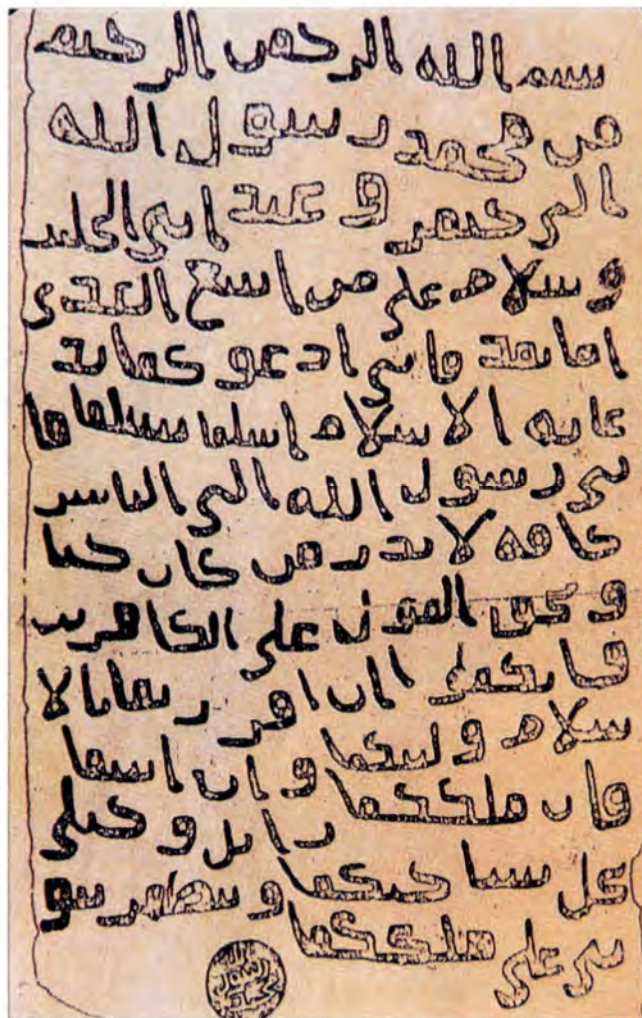 بسم الله الرحمن الرحيم
من محمد رسول الله
الى جيفر و عبد ابني الجلند
و سلام على من اتبع الهدى
اما بعد فاني ادعوكما بد
عايه الاسلام اسلما تسلما فا
ني رسول الله الى الناس
كافه لانذر من كان حيا
و يحق القول على الكافرين
فانكما ان اقررتما بالا
سلام وليتكما و ان ابيتما
فان ملككما زايل و خيلي
تحل بساحتكما و تظهر نبو
تي على ملككما
الله
رسول
محمد